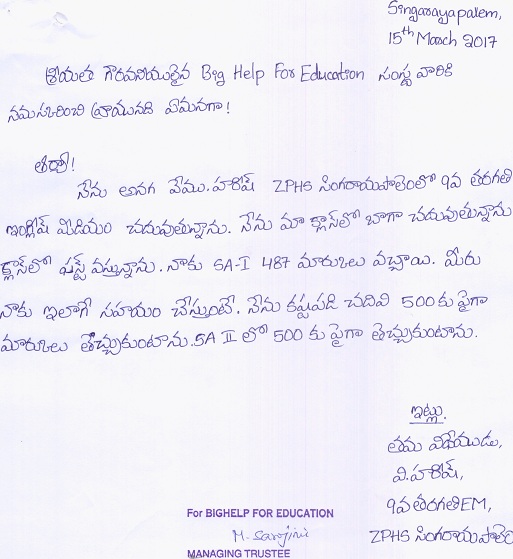 Singarayapalem,
15th March 2017
శ్రీయుత గౌరవనీయులైన Big Help For Education సంస్థ వారికి
నమస్కరించి వ్రాయునది ఏమనగా!
ఆర్యా!
నేను అనగ వేము. హరీష్ ZPHS సింగరాయపాలెంలో 9వ తరగతి
ఇంగ్లీష్ మీడియం చదువుతున్నాను. నేను మా క్లాస్‌లో బాగా చదువుతున్నాను
క్లాస్‌లో ఫస్ట్ వస్తున్నాను. నాకు SA-I 487 మార్కులు వచ్చాయి. మీరు
నాకు ఇలాగే సహయం చేస్తుంటే. నేను కష్టపడి చదివి 500 కు పైగా
మార్కులు తెచ్చుకుంటాను. SA II లో 500 కు పైగా తెచ్చుకుంటాను.
ఇట్లు
తమ విధేయుడు,
వి. హరీష్,
9వ తరగతి EM,
ZPHS సింగరాయపాలెం
For BIGHELP FOR EDUCATION
M. Sarojini
MANAGING TRUSTEE